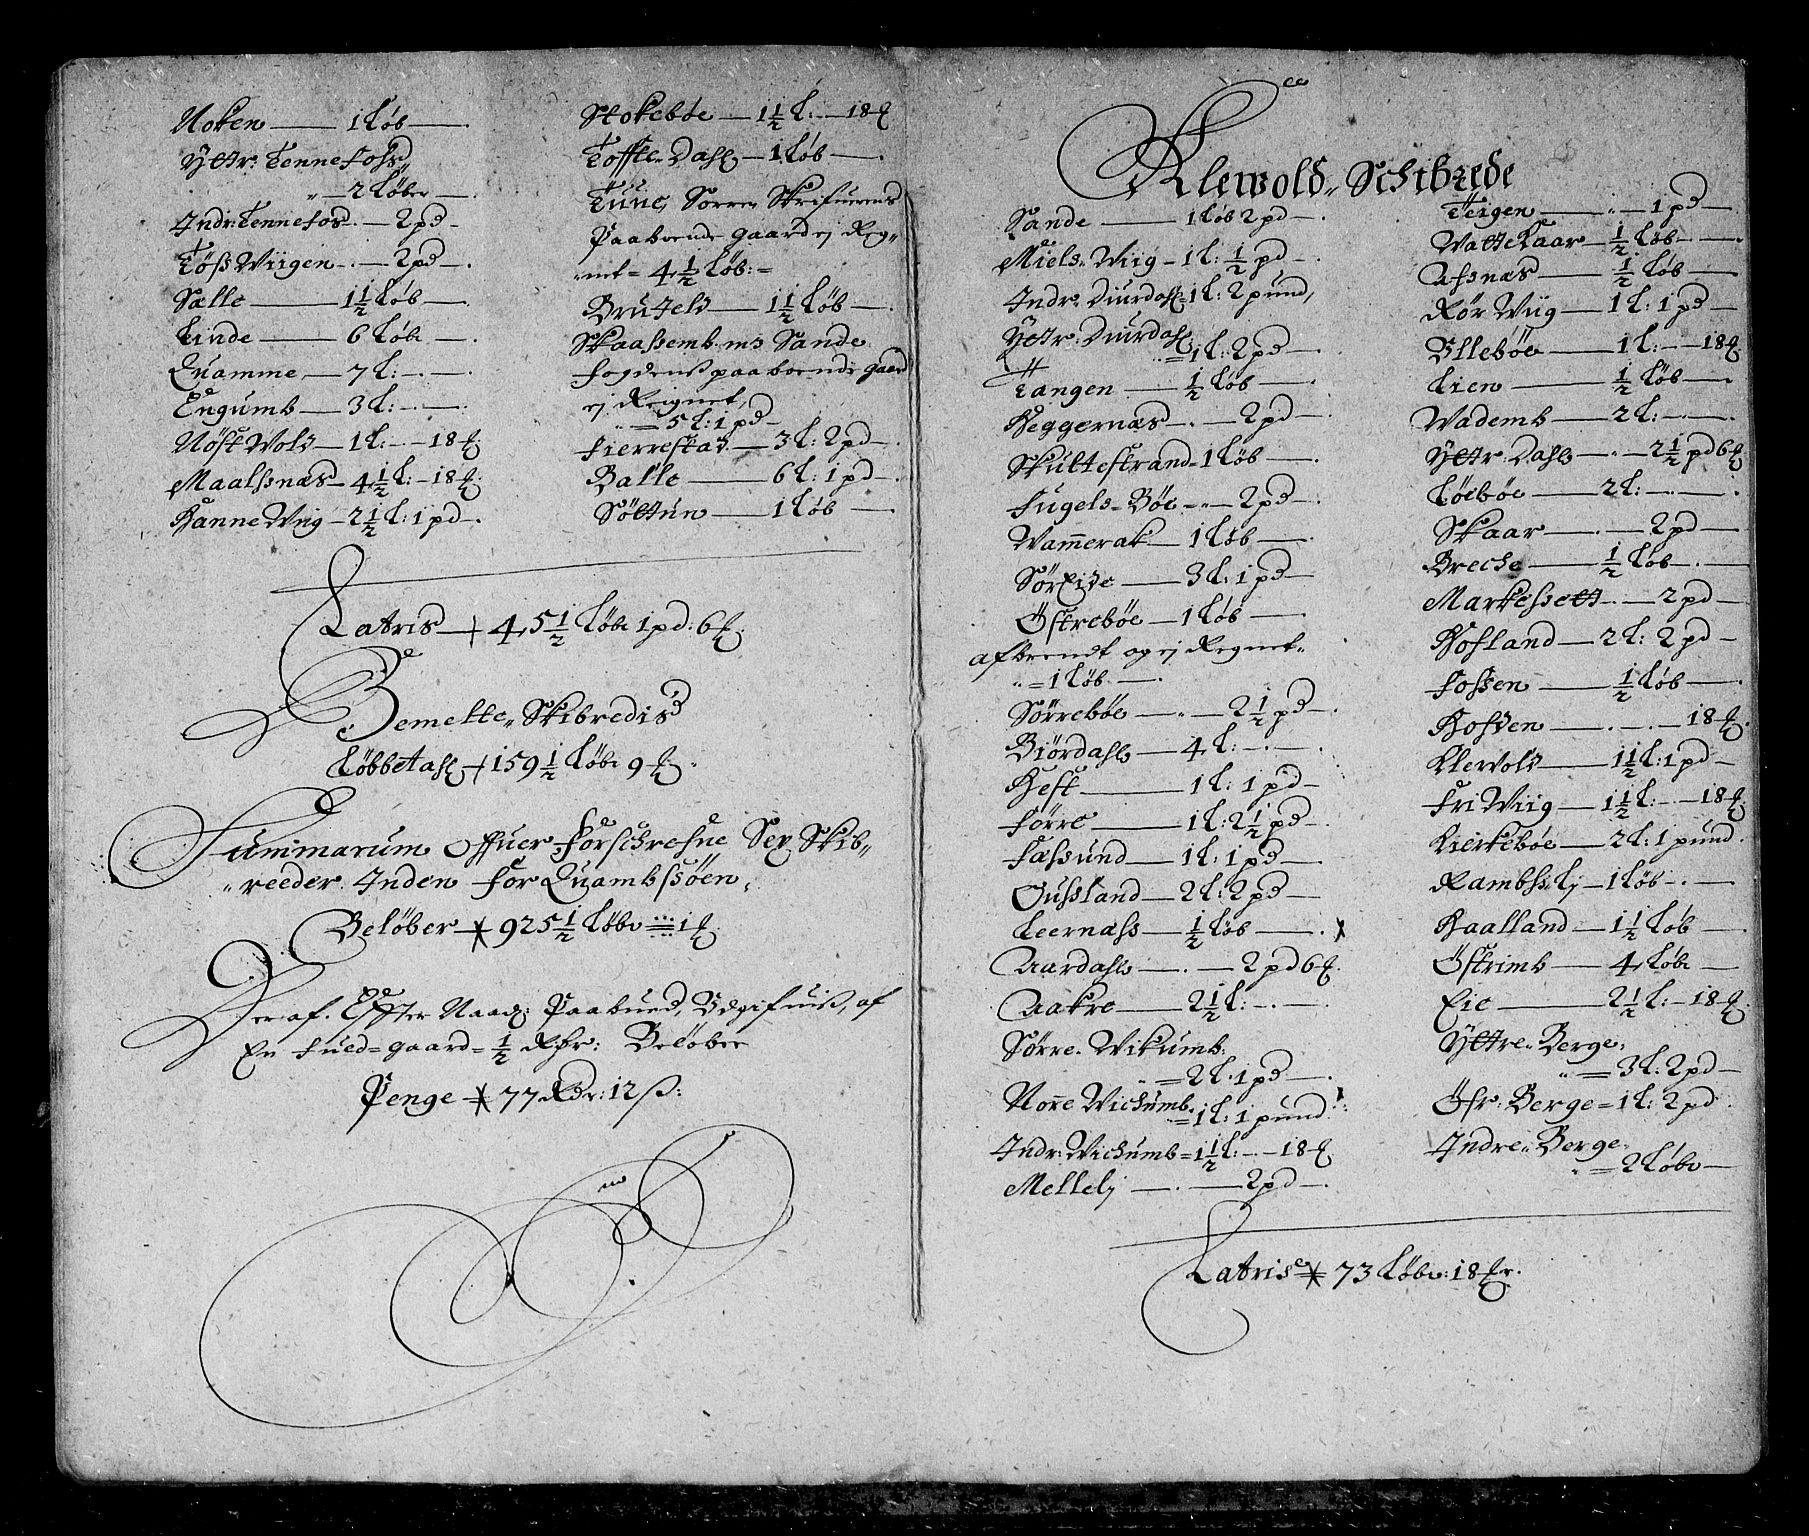 Noken — 1 Løb —
Yttr: Tennefoss
„ — 2 Løber —
Indr: Tennefos — 2 pd —
Tøss Wiigen — 2 pd —
Sælle — 1½ Løb —
Linde — 6 Løbe —
Quamme — 7 L: —
Engumb — 3 L: —
Nøst Vold — 1 L: — 18 ℔
Maalsnæs — 4½ L: — 18 ℔
Hanne Viig — 2½ L: 1 pd —
Stokebøe — 1½ L: — 18 ℔
Tofte Dahl — 1 Løb —
Tune, Sorren Skrifuerens
Paaboende gaard ej Reg„
net = 4½ Løb: =
Brufeld — 1½ Løb —
Skaassemb. m3 Sande
fogdens paaboende gaard
ej Reignet,
„ — 5 L: 1 pd —
Fierrestad — 3 L: 2 pd —
Balle — 6 L: 1 pd —
Søltun — 1 Løb —
Latris 45½ Løbe 1 pd: 6 ℔
Bemelte Skibredis
Løbbetahl 159½ Løbe 9 ℔
Summarum Offuer Forschrefne Sex Skib„
„reeder Inden for Quambssøen,
Beløber 925½ Løbe 1 ℔
Der af Effter Naad: Paabued, Udgifuis, af
En fuld= gaard = ½ Rdr: Beløber
Penge 77 Rdr: 12 ß:
Klewold„ Schibrede
Sande — 1 Løb 2 pd —
Miels Wiig — 1 L: ½ pd —
Indr: Duurdahl = 1 L: 2 pund,
Yttr: Duurdahl
„ = 1 L: 2 pd —
Tangen — ½ Løb —
Heggernæs — 2 pd —
Skultestrand — 1 Løb —
Fugels Bøe — 2 pd —
Wammerak — 1 Løb —
Søreide — 3 L: 1 pd —
Østrebøe — 1 Løb —
afbrendt og ej Regnet„
„ = 1 Løb —
Sørrebøe — „ — 2½ pd —
Biørdahl — 4 L: —
Hest — 1 L: 1 pd —
Førre — 1 L: 2½ pd —
Fæssund — 1 L: 1 pd —
Oussland — 2 L: 2 pd —
Leernæss — ½ Løb —
Aardahl — 2 pd 6 ℔
Aakre — 2½ L: —
Sørre Wikumb:
„ = 2 L: 1 pd —
Norre Wichumb
= 1 L: 1 pund
Indr: Wichumb = 1½ L: — 18 ℔
Mellelj — 2 pd —
Teigen — „ — 1 pd —
Wattekaar — ½ Løb —
Assnæs — ½ Løb —
Rør Wiig — 1 L: 1 pd —
Ullebøe — 1 L: — 18 ℔
Lien — ½ Løb —
Wademb — 2 L: —
Yttr: Dahl — „ — 2½ pd 6 ℔
Løebøe — 2 L: —
Skaar — 2 pd —
Breche — ½ Løb —
Markesett — 2 pd —
Hofland — 2 L: 2 pd —
Fossen — ½ Løb —
Hofden — 18 ℔
Klewold — 1½ L: 1 pd —
Fri Wiig — 1½ L: — 18 ℔
Kierkebøe — 2 L: 1 pund
Rambslj — 1 Løb —
Haalland — 1½ Løb —
Østrimb — 4 Løbe —
Eie — 2½ L: — 18 ℔
Yttre Berge:
„ = 3 L: 2 pd —
Øfr: Berge = 1 L: 2 pd
Indre Berge
„ = 2 Løbe —
Latris 73 Løbe: 18 ℔r.